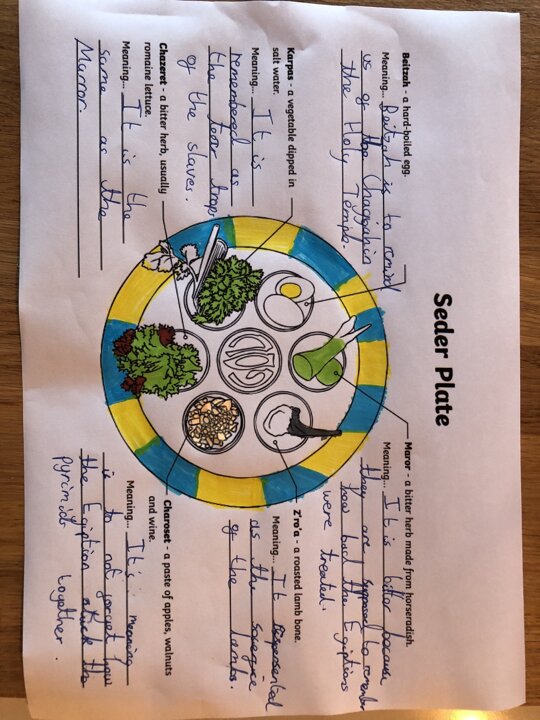 Seder Plate
Beitzah - a hard-boiled egg.
Meaning... Beitzah is to remind
us of the Chaggahia
the Holy Temple.
Karpas - a vegetable dipped in
salt water.
Meaning... It is
remembered as
the tear drops
of the slaves.
Chazeret - a bitter herb, usually
romaine lettuce.
Meaning... It is the
same as the
Murror.
Maror - a bitter herb made from horseradish.
Meaning... It is bitter because
they are supposed to remember
how bad the Egiptions
were treated.
Z'ro'a - a roasted lamb bone.
Meaning... It representid
as the
of the lambs.
Charoset - a paste of apples, walnuts
and wine.
Meaning... It's meaning
is to not forget how
the Egiption stuck the
pyrimids together.
פסח